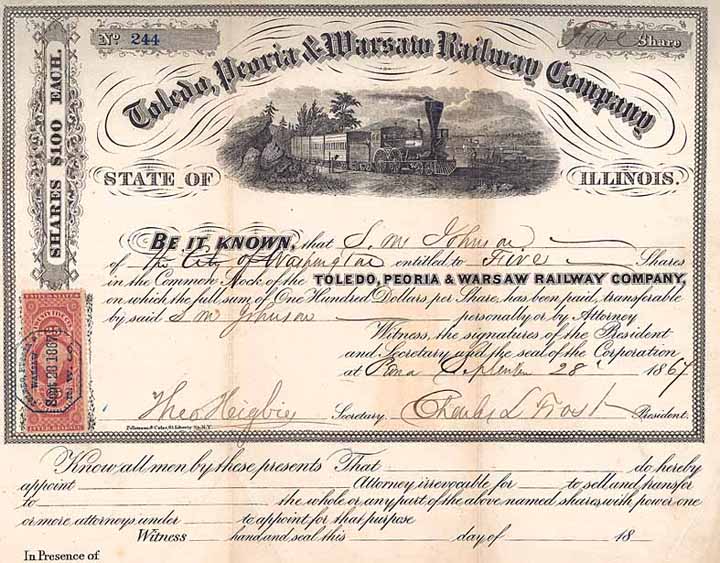 SHARES $100 EACH.
No 244
Five Share
Toledo, Peoria & Warsaw Railway Company
STATE OF ILLINOIS.
BE IT KNOWN, that S. M Johnson
of the City of Washington entitled to Five Shares
in the Common Stock of the TOLEDO, PEORIA & WARSAW RAILWAY COMPANY,
on which the full sum of One Hundred Dollars per Share, has been paid, transferable
by said S M Johnson personally or by Attorney
Witness, the signatures of the President
and Secretary and the seal of the Corporation
at Peoria September 28 1867
Theo Heigbie Secretary. Charles L Frost President.
Know all men by these presents That do hereby
appoint Attorney irrevocable for to sell and transfer
to the whole or any part of the above named shares with power one
or more attorneys under to appoint for that purpose
Witness hand and seal this day of 18
In Presence of